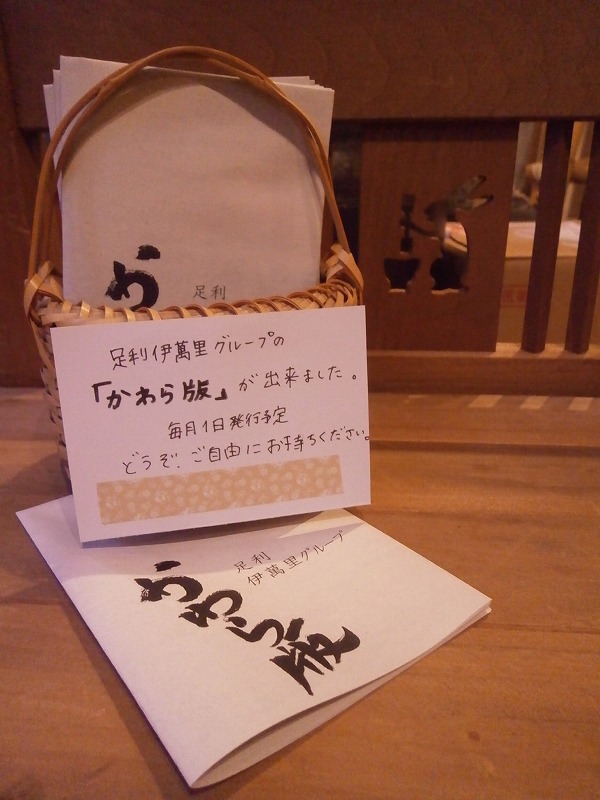 か
足利
足利伊萬里グループの
「かわら版」が出来ました。
毎月1日発行予定
どうぞ、ご自由にお持ちください。
足利
伊萬里グループ
かわら版